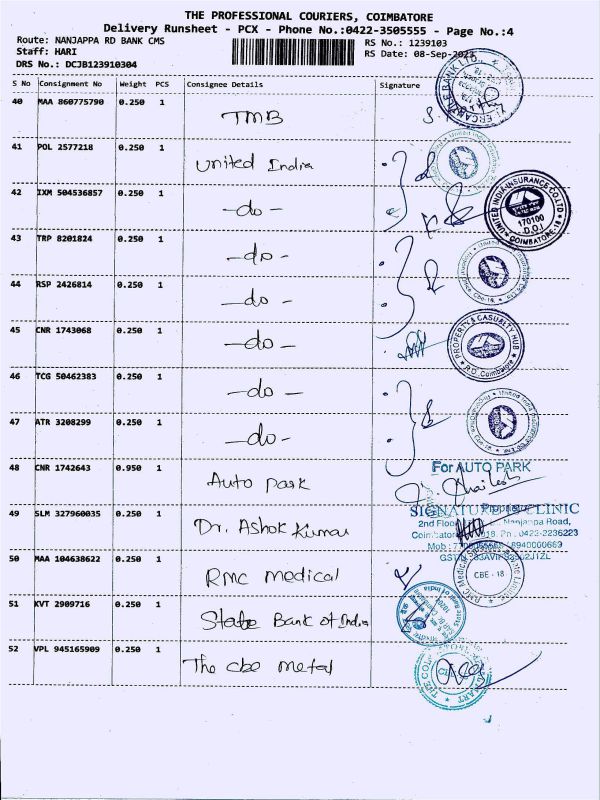 THE PROFESSIONAL COURIERS, COIMBATORE
Delivery Runsheet - PCX - Phone No.:0422-3505555 - Page No.:4
Route: NANJAPPA RD BANK CMS
RS No.: 1239103
Staff: HARI
RS Date: 08-Sep-2023
DRS No.: DCJB123910304
S No Consignment No Weight PCS Consignee Details Signature
40 MAA 860775790 0.250 1 TMB
41 POL 2577218 0.250 1 United India
42 IXM 504536857 0.250 1 -do-
UNITED INDIA INSURANCE CO. LTD
170100
D.O.I
COIMBATORE-18
43 TRP 8201824 0.250 1 -do-
44 RSP 2426814 0.250 1 -do-
45 CNR 1743068 0.250 1 -do-
PROPERTY & CASUALTY HUB
R.O. Coimbatore
46 TCG 50462383 0.250 1 -do-
47 ATR 3208299 0.250 1 -do-
48 CNR 1742643 0.950 1 Auto park
For AUTO PARK
Proprietor
49 SLM 327960035 0.250 1 Dr. Ashok Kumar
SIGNATURE CLINIC
2nd Floor Nanjappa Road,
0422-2236223
8940000663
50 MAA 104638622 0.250 1 RMC medical
CBE - 18
51 KVT 2909716 0.250 1 State Bank of India
52 VPL 945165909 0.250 1 The cbe metal